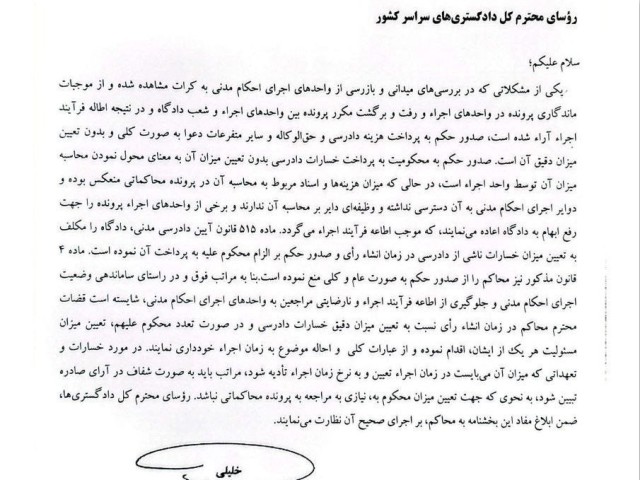 رؤسای محترم کل دادگستری‌های سراسر کشور
سلام علیکم؛
یکی از مشکلاتی که در بررسی‌های میدانی و بازرسی از واحدهای اجرای احکام مدنی به کرات مشاهده شده و از موجبات
ماندگاری پرونده در واحدهای اجراء و رفت و برگشت مکرر پرونده بین واحدهای اجراء و شعب دادگاه و در نتیجه اطاله فرآیند
اجراء آراء شده است، صدور حکم به پرداخت هزینه دادرسی و حق‌الوکاله و سایر متفرعات دعوا به صورت کلی و بدون تعیین
میزان دقیق آن است. صدور حکم به محکومیت به پرداخت خسارات دادرسی بدون تعیین میزان آن به معنای محول نمودن محاسبه
میزان آن توسط واحد اجراء است، در حالی که میزان هزینه‌ها و اسناد مربوط به محاسبه آن در پرونده محاکماتی منعکس بوده و
دوایر اجرای احکام مدنی به آن دسترسی نداشته و وظیفه‌ای دایر بر محاسبه آن ندارند و برخی از واحدهای اجراء پرونده را جهت
رفع ابهام به دادگاه اعاده می‌نمایند، که موجب اطاعه فرآیند اجراء می‌گردد. ماده ۵۱۵ قانون آیین دادرسی مدنی، دادگاه را مکلف
به تعیین میزان خسارات ناشی از دادرسی در زمان انشاء رأی و صدور حکم بر الزام محکوم علیه به پرداخت آن نموده است. ماده ۴
قانون مذکور نیز محاکم را از صدور حکم به صورت عام و کلی منع نموده است.بنا به مراتب فوق و در راستای ساماندهی وضعیت
اجرای احکام مدنی و جلوگیری از اطاعه فرآیند اجراء و نارضایتی مراجعین به واحدهای اجرای احکام مدنی، شایسته است قضات
محترم محاکم در زمان انشاء رأی نسبت به تعیین میزان دقیق خسارات دادرسی و در صورت تعدد محکوم علیهم، تعیین میزان
مسئولیت هر یک از ایشان، اقدام نموده و از عبارات کلی و احاله موضوع به زمان اجراء خودداری نمایند. در مورد خسارات و
تعهداتی که میزان آن می‌بایست در زمان اجراء تعیین و به نرخ زمان اجراء تأدیه شود، مراتب باید به صورت شفاف در آرای صادره
تبیین شود، به نحوی که جهت تعیین میزان محکوم به، نیازی به مراجعه به پرونده محاکماتی نباشد. رؤسای محترم کل دادگستری‌ها،
ضمن ابلاغ مفاد این بخشنامه به محاکم، بر اجرای صحیح آن نظارت می‌نمایند.
خلیلی